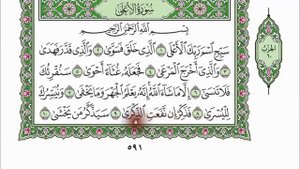 سُورَةُ الأَعْلَىٰ
بِسْمِ اللَّهِ الرَّحْمَٰنِ الرَّحِيمِ
سَبِّحِ اسْمَ رَبِّكَ الْأَعْلَى ١ الَّذِي خَلَقَ فَسَوَّىٰ ٢ وَالَّذِي قَدَّرَ فَهَدَىٰ
٣ وَالَّذِي أَخْرَجَ الْمَرْعَىٰ ٤ فَجَعَلَهُ غُثَاءً أَحْوَىٰ ٥ سَنُقْرِئُكَ
فَلَا تَنسَىٰ ٦ إِلَّا مَا شَاءَ اللَّهُ إِنَّهُ يَعْلَمُ الْجَهْرَ وَمَا يَخْفَىٰ ٧ وَنُيَسِّرُكَ
لِلْيُسْرَىٰ ٨ فَذَكِّرْ إِن نَّفَعَتِ الذِّكْرَىٰ ٩ سَيَذَّكَّرُ مَن يَخْشَىٰ ١٠
٥٩١